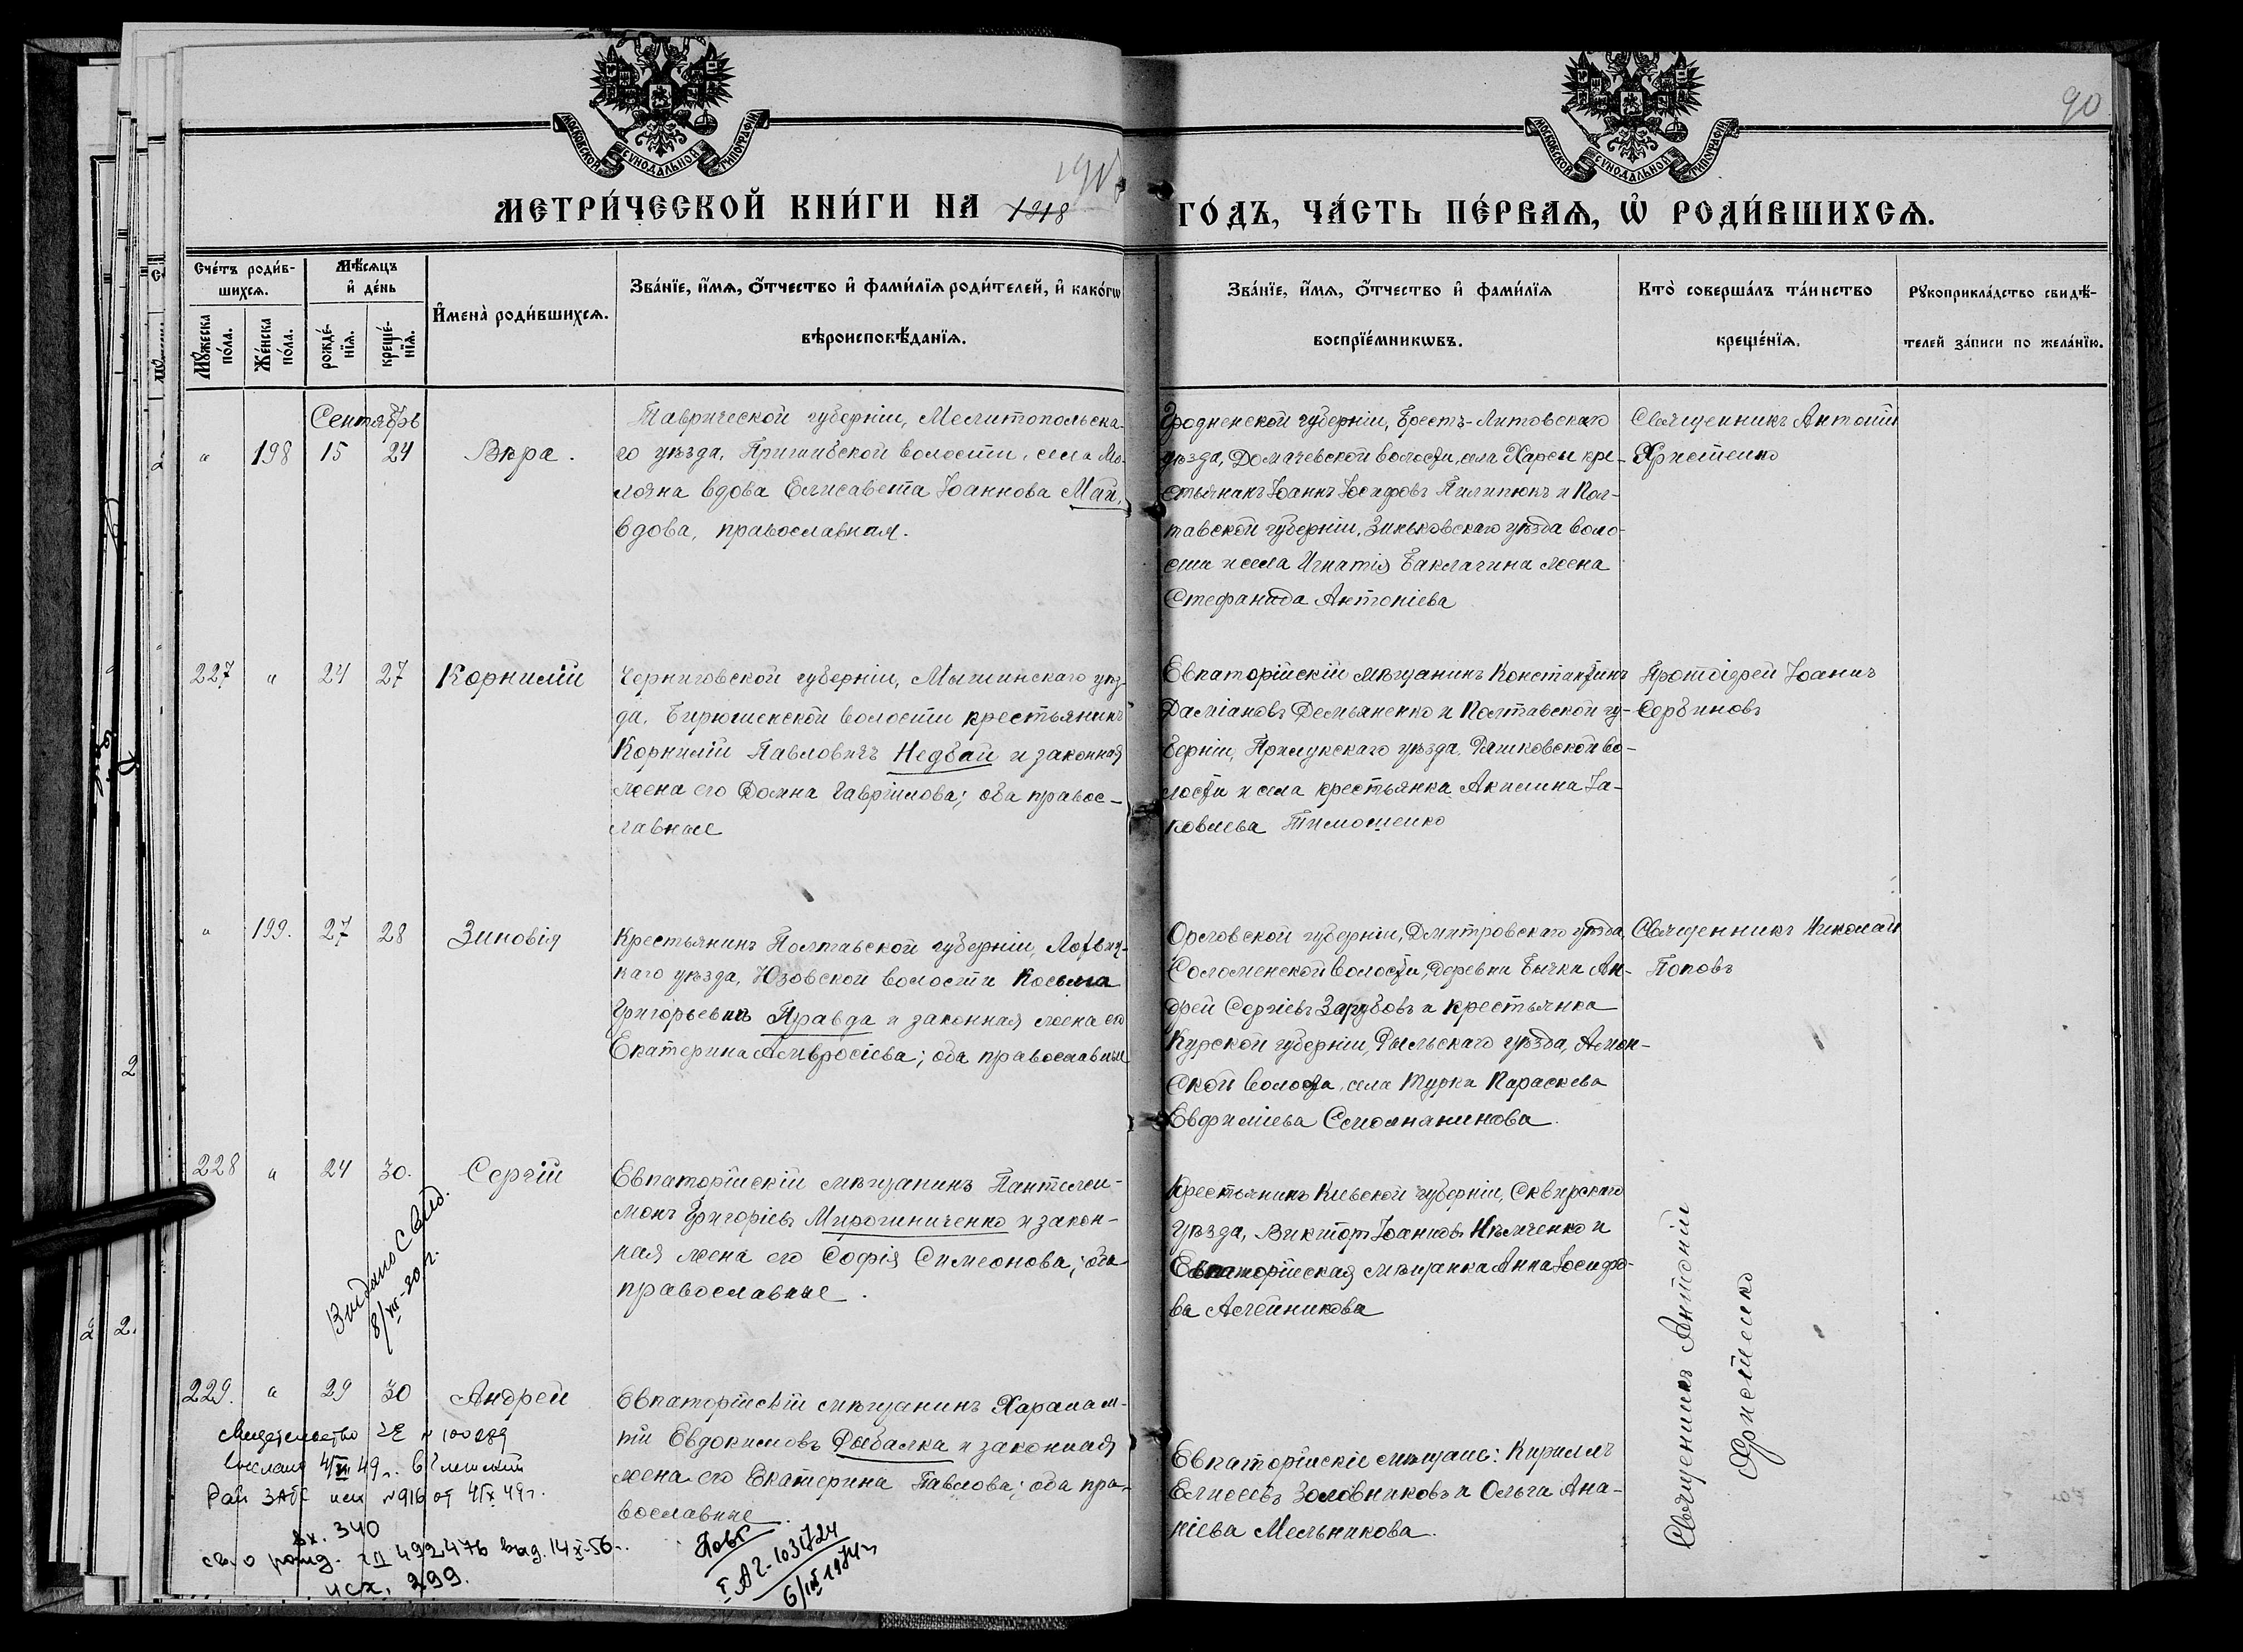 МОСКОВСКОЙ СѴНОДАЛЬНОЙ ТИПОГРАФІИ
МОСКОВСКОЙ СѴНОДАЛЬНОЙ ТИПОГРАФІИ
90
МЕТРИ́ЧЕСКОЙ КНИ́ГИ НА 1918
ГО́ДЪ, ЧА́СТЬ ПЕ́РВАЯ, Ѡ РОДИ́ВШИХСЯ.
Сче́тъ роди́в-
шихся.
Мѣ́сяцъ
и҆ де́нь
Мꙋ́жеска
по́ла.
Же́нска
по́ла.
рожде́-
нїя.
креще́-
нїя.
И҆мена̀ роди́вшихся.
Зва́нїе, и҆́мя, ѻ҆́тчество и҆ фами́лїя роди́телей, и҆ како́гѡ
вѣроисповѣ́данїя.
Зва́нїе, и҆́мя, ѻ҆́тчество и҆ фами́лїя
воспрїе́мникѡвъ.
Кто̀ соверша́лъ та́инство
креще́нїя.
Рꙋкоприкла́дство свидѣ́-
телей за́писи по жела́нїю.
Сентябрь
" 198 15 24 Вѣра.
Таврической губерніи, Мелитопольска-
го уѣзда, Пришибской волости, села Мо-
лочна вдова Елисавета Іоаннова Май-
вдова, православная.
Гродненской губерніи, Брестъ-Литовскаго
уѣзда, Домачевской волости, села Харсы кре-
стьянинъ Іоаннъ Іосифовъ Пилипюкъ и Пол-
тавской губерніи, Зиньковскаго уѣзда воло-
сти и села Игнатія Баклагина жена
Стефанида Антоніева
Священникъ Антоній
Христенко
227 " 24 27 Корнилій
Черниговской губерніи, Мглинскаго уѣз-
да, волости крестьянинъ
Корнилій Павловичъ Недбай и законная
жена его Домна Гавріилова; оба правос-
лавные
Евпаторійскій мѣщанинъ Константинъ
Даміановъ Демьяненко и Полтавской гу-
берніи, Прилукскаго уѣзда, Ряшковской во-
лости и села крестьянка Акилина Іа-
ковлева Тимошенко
Протоіерей Іоаннъ
Сербиновъ
" 199. 27 28 Зиновія
Крестьянинъ Полтавской губерніи, Лохвиц-
каго уѣзда, Юзовской волости Косьма
Григорьевичъ Правда и законная жена его
Екатерина Амвросіева; оба православные
Орловской губерніи, Дмитровскаго уѣзда
Соломенской волости, деревни Бычки Ан-
дрей Сергіевъ Зарубовъ и крестьянка
Курской губерніи, Рыльскаго уѣзда, Асмон-
ской волости, села Турки Параскева
Евфиміева
Священникъ Николай
Поповъ
228 " 24 30. Сергій
Евпаторійскій мѣщанинъ Пантелеи-
монъ Григоріевъ Мирошниченко и закон-
ная жена его Софія Симеонова; оба
православные.
Крестьянинъ Кіевской губерніи, Сквирскаго
уѣзда, Викторъ Іоанновъ Ильченко и
Евпаторійская мѣщанка Анна Іосифо-
ва Алейникова
Видано Свид.
8/VII-20 г.
229. " 29 30 Андрей
Евпаторійскій мѣщанинъ Харалам-
пій Евдокимовъ Рыбалка и законная
жена его Екатерина Павлова; оба пра-
вославные.
Евпаторійскіе мѣщане: Кириллъ
Елисеевъ Золовниковъ и Ольга Ана-
ніева Мельникова.
Священникъ Антоній
Христенко
Свидетельство № 100289
выслано 49 г. в
Рай ЗАГС исх №916 от 4/X 49 г.
вх. 340
св. о рожд. 492476 выд. 14/X-56 г.
исх. 299.
Повт
I АГ-103
6/III 1974 г